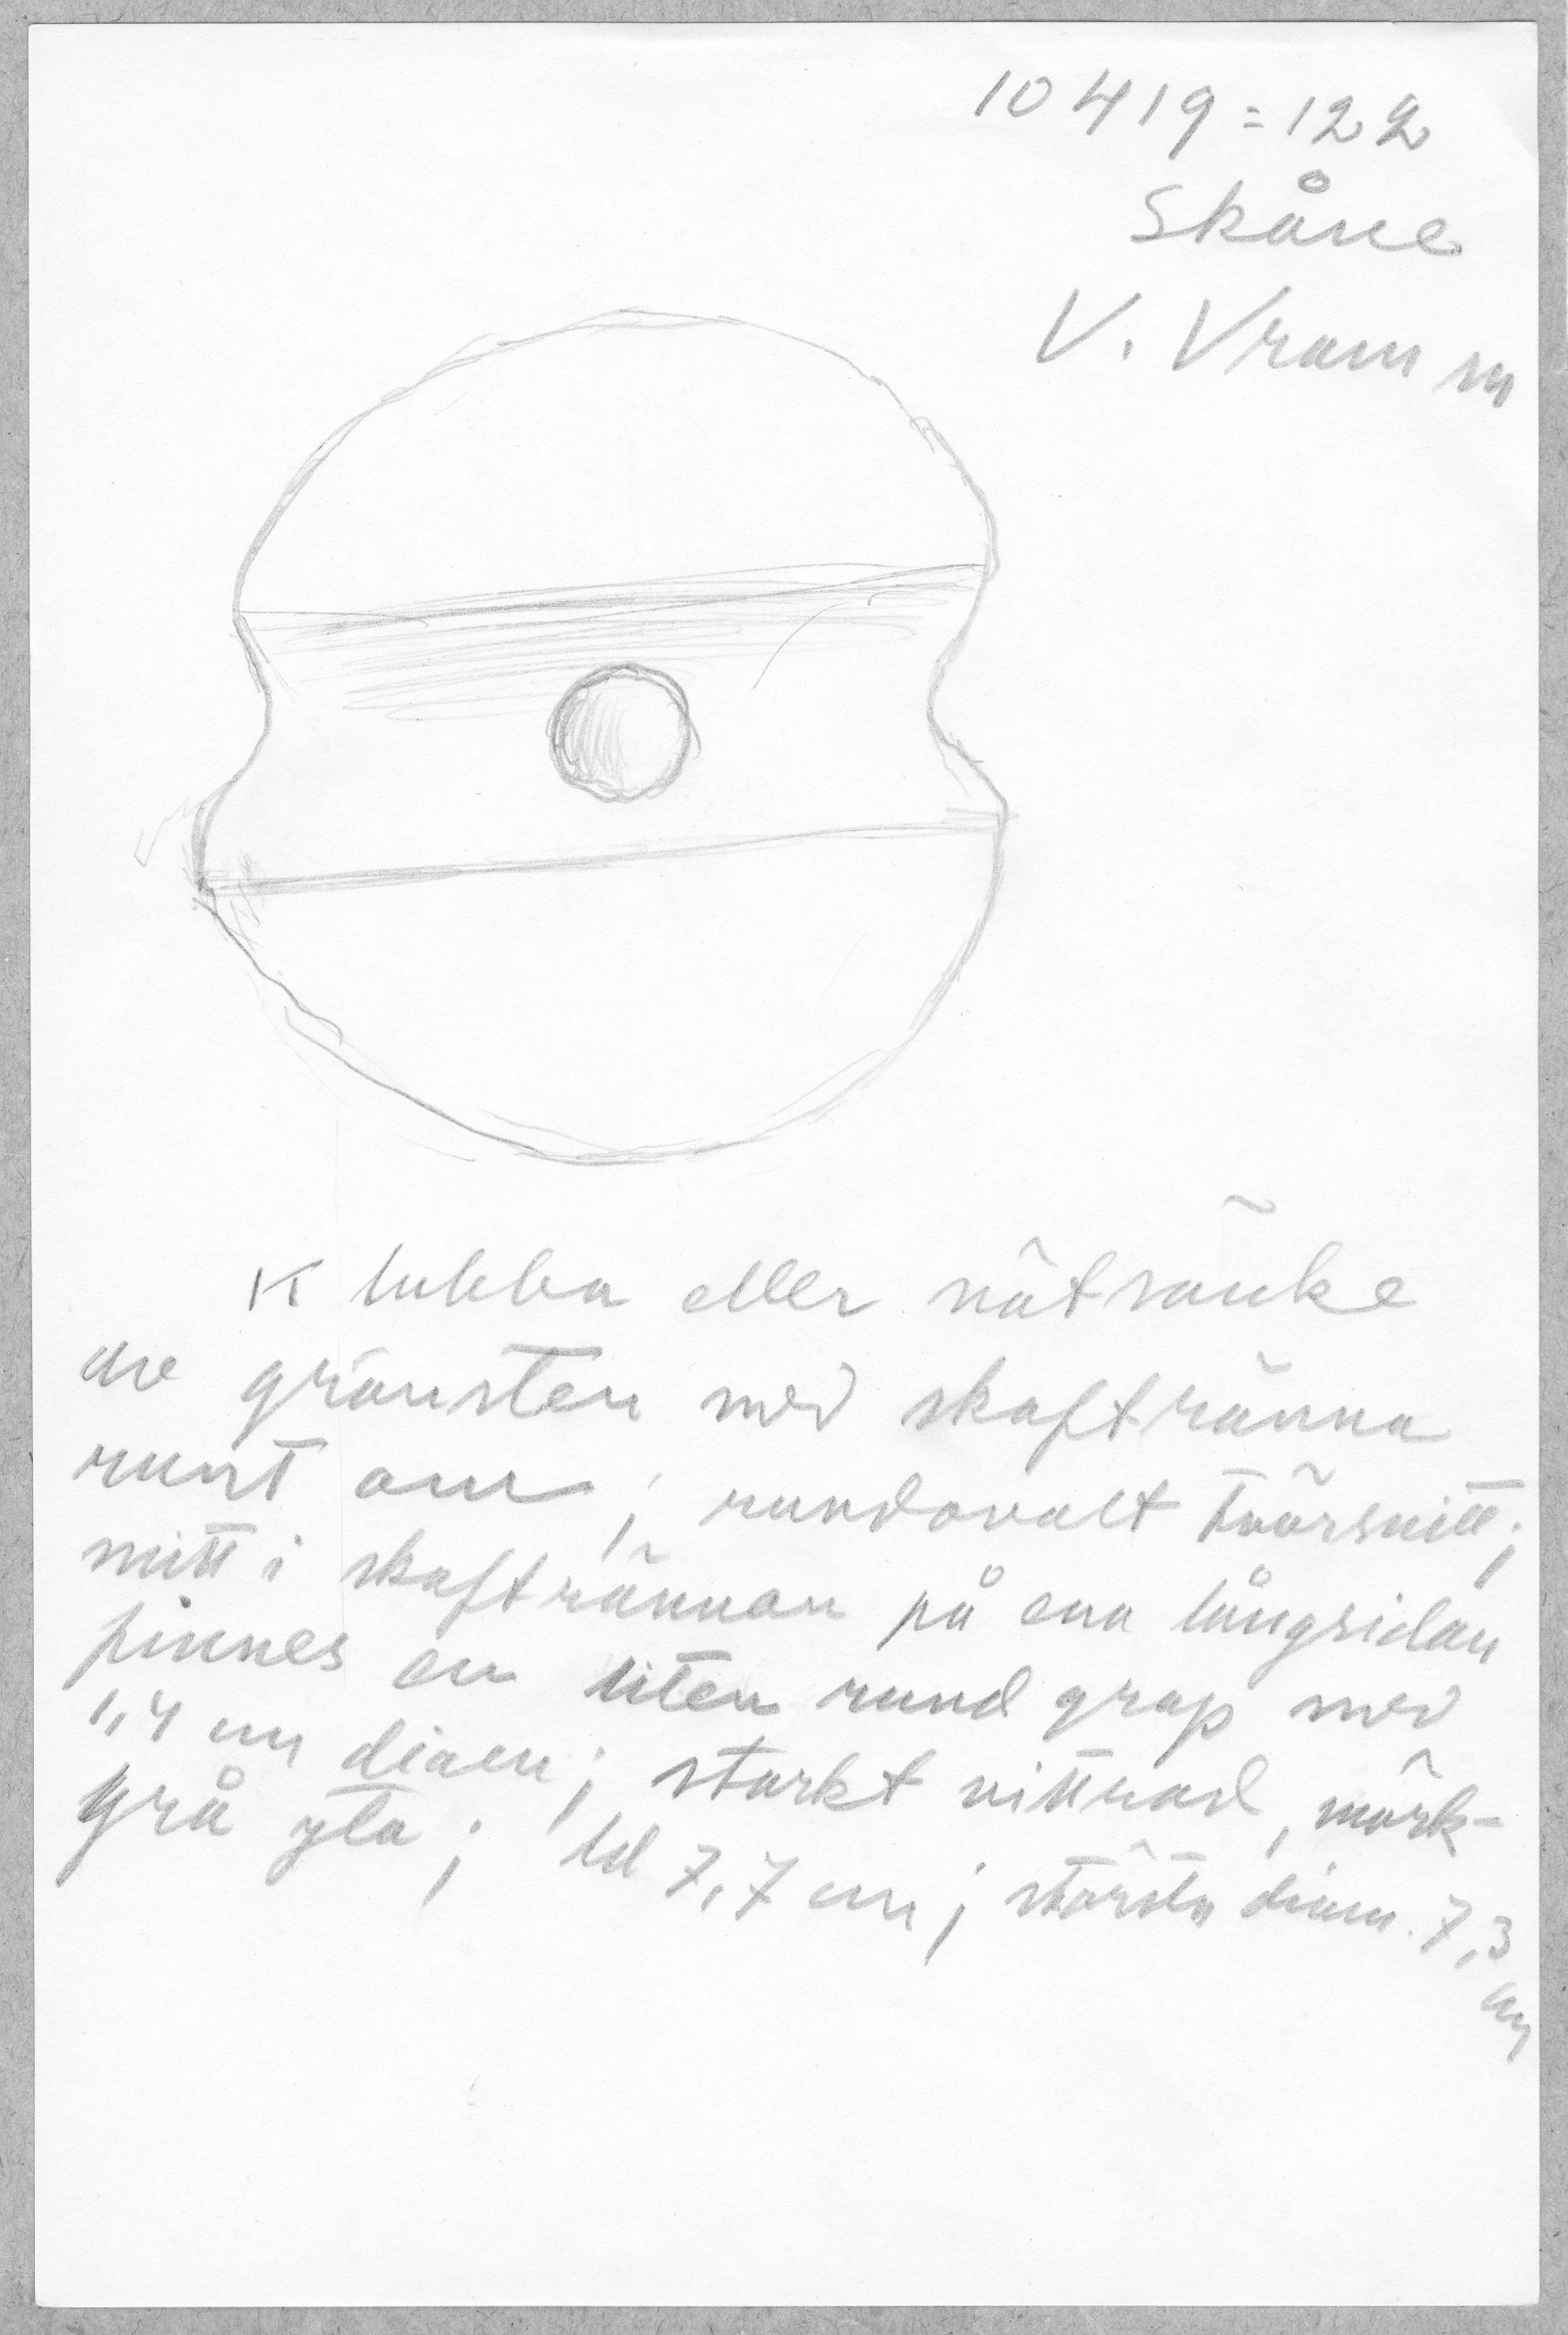 10419=122
Skåne
V. Vram sn
Klubba eller nätsänke
av grönsten med skaftränna
runt om; rundovalt tvärsnitt;
mitt i skaftrännan på ena långsidan
finnes en liten rund grop med
1,4 cm diam; starkt vittrad, mörk-
grå yta; ld 7,7 cm; största diam. 7,3
cm